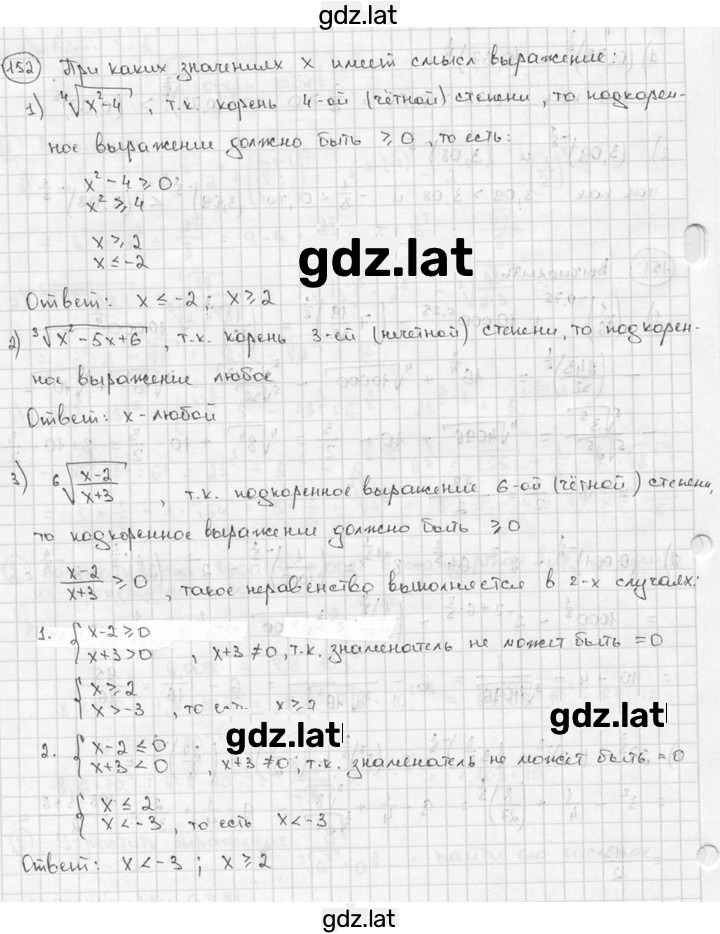 gdz.lat
152 При каких значениях x имеет смысл выражение:
1) ⁴√(x²-4), т.к. корень 4-ой (чётной) степени, то подкорен-
ное выражение должно быть ≥ 0, то есть:
x² - 4 ≥ 0
x² ≥ 4
x ≥ 2
x ≤ -2
gdz.lat
Ответ: x ≤ -2; x ≥ 2
2) ³√(x² - 5x + 6), т.к. корень 3-ей (нечётной) степени, то подкорен-
ное выражение любое
Ответ: x - любой
3) ⁶√((x-2)/(x+3)), т.к. подкоренное выражение 6-ой (чётной) степени,
то подкоренное выражение должно быть ≥ 0
(x-2)/(x+3) ≥ 0, такое неравенство выполняется в 2-х случаях:
1. { x-2 ≥ 0
x+3 > 0, x+3 ≠ 0, т.к. знаменатель не может быть = 0
{ x ≥ 2
x > -3, то есть x ≥ 2
gdz.lat
gdz.lat
2. { x-2 ≤ 0
x+3 < 0, x+3 ≠ 0, т.к. знаменатель не может быть = 0
{ x ≤ 2
x < -3, то есть x < -3
Ответ: x < -3; x ≥ 2
gdz.lat